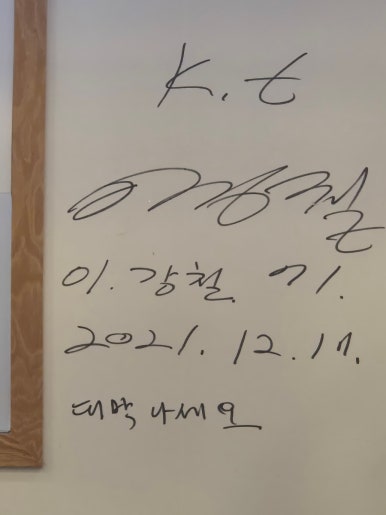 K.t
이강철
이.강철. 71.
2021. 12. 17.
대박나세요